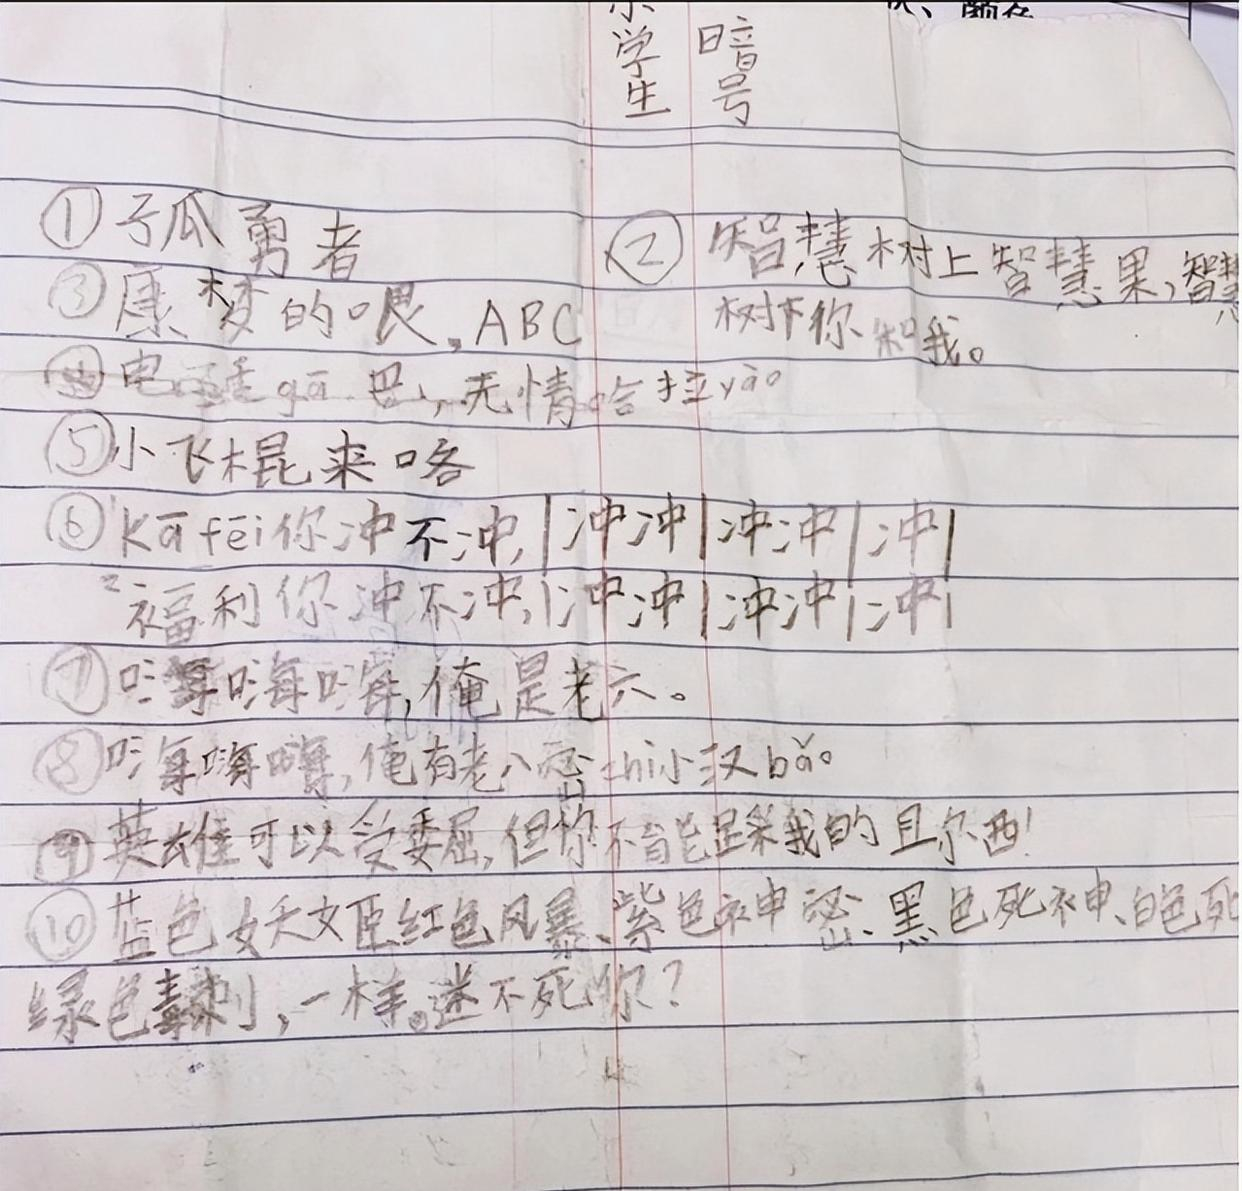 小学生 暗号
①孑瓜勇者
②智慧树上智慧果,智慧
树下你和我。
③康桉的喂,ABC
④电 gā巴,无情哈拉yào
⑤小飞棍来咯
⑥1Kāfēi你冲不冲,|冲冲|冲冲|冲|
2福利你冲不冲,|冲冲|冲冲|冲|
⑦嗨嗨嗨,俺是老六。
⑧嗨嗨嗨,俺有老八密chi小汉bǎo
⑨英雄可以受委屈,但你不能踩我的且尔西!
⑩蓝色妖文臣红色风暴、紫色神密、黑色死神、白色死
绿色毒刺,一样。迷不死你?